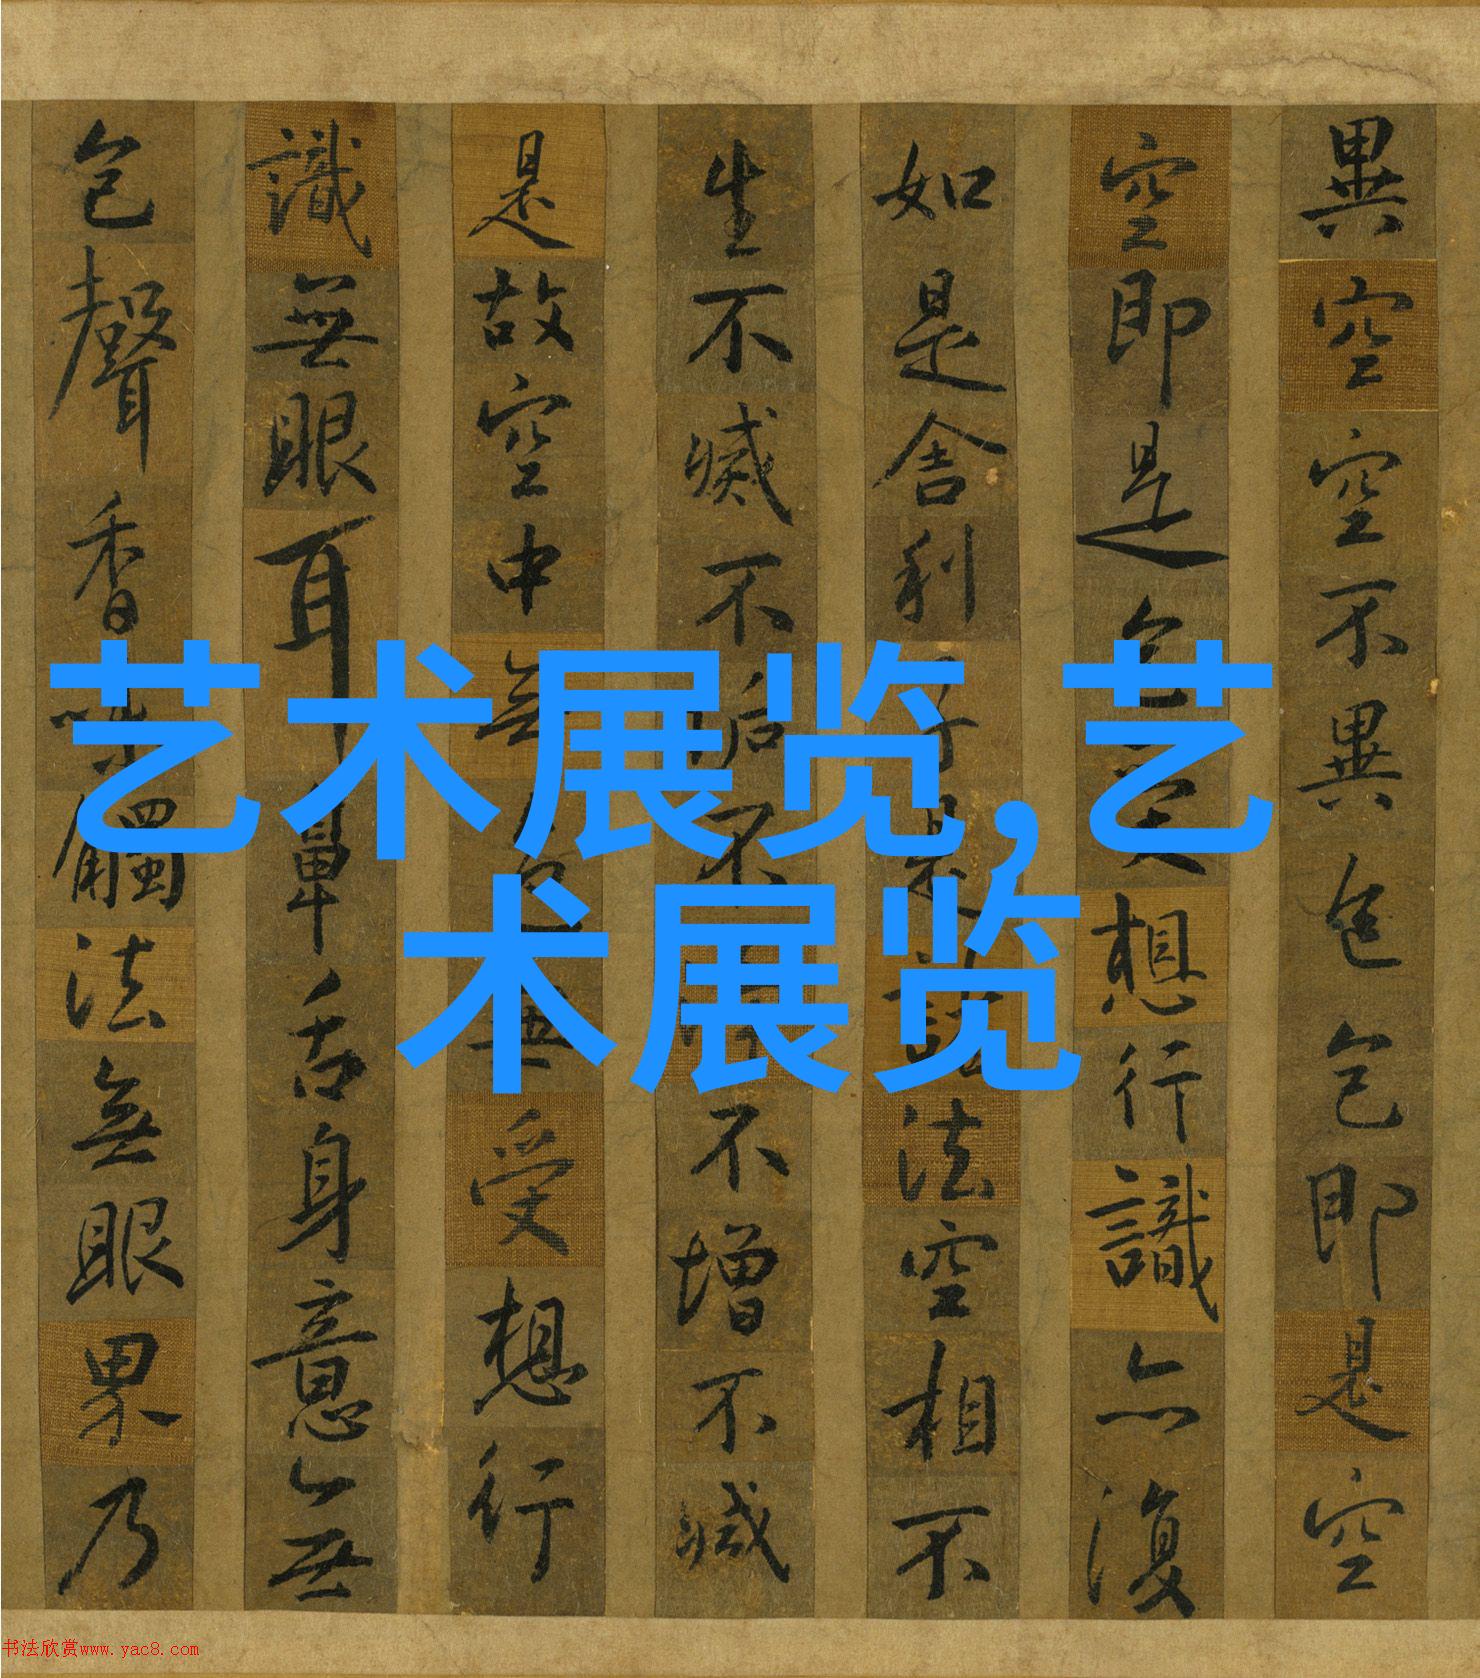 異空空不異色色即是空
空即是色受想行識亦復
如是舍利子是諸法空相不
生不滅不垢不不增不減
是故空中無色無受想行
識無眼耳鼻舌身意無
色聲香味觸法無眼界乃
艺术展览,艺
术展览
书法欣赏www.yac8.com